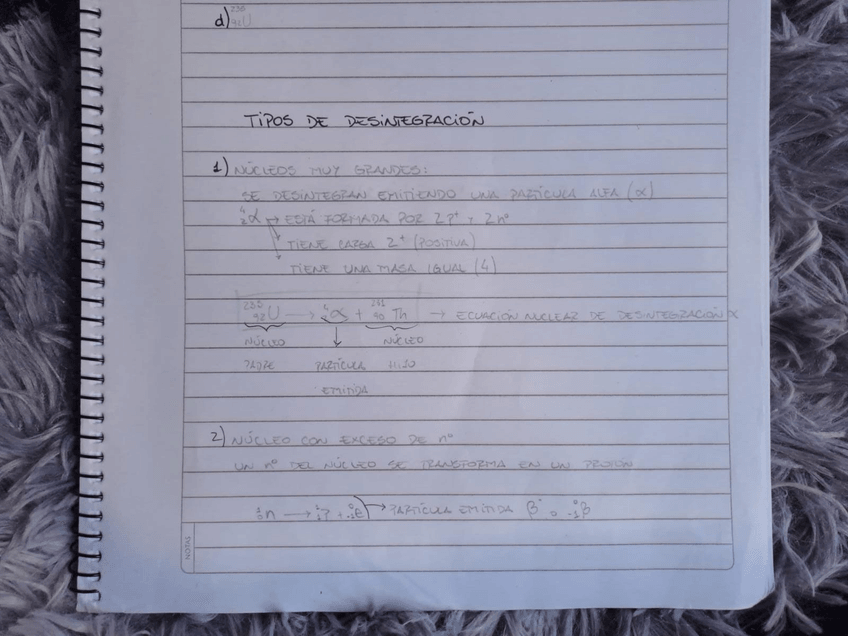 d) ²³⁵₉₂U
TIPOS DE DESINTEGRACIÓN
1) NÚCLEOS MUY GRANDES:
SE DESINTEGRAN EMITIENDO UNA PARTÍCULA ALFA (α)
⁴₂α → ESTÁ FORMADA POR 2p⁺ Y 2n⁰
TIENE CARGA 2⁺ (POSITIVA)
TIENE UNA MASA IGUAL (4)
₉₂U → ⁴₂α + ₉₀Th → ECUACIÓN NUCLEAR DE DESINTEGRACIÓN α
NÚCLEO NÚCLEO
PADRE PARTÍCULA HIJO
EMITIDA
2) NÚCLEO CON EXCESO DE n⁰
UN n⁰ DEL NÚCLEO SE TRANSFORMA EN UN PROTÓN
¹₀n → ¹₁p + ⁰₋₁e → PARTÍCULA EMITIDA β⁻ o ⁰₋₁β
NOTAS